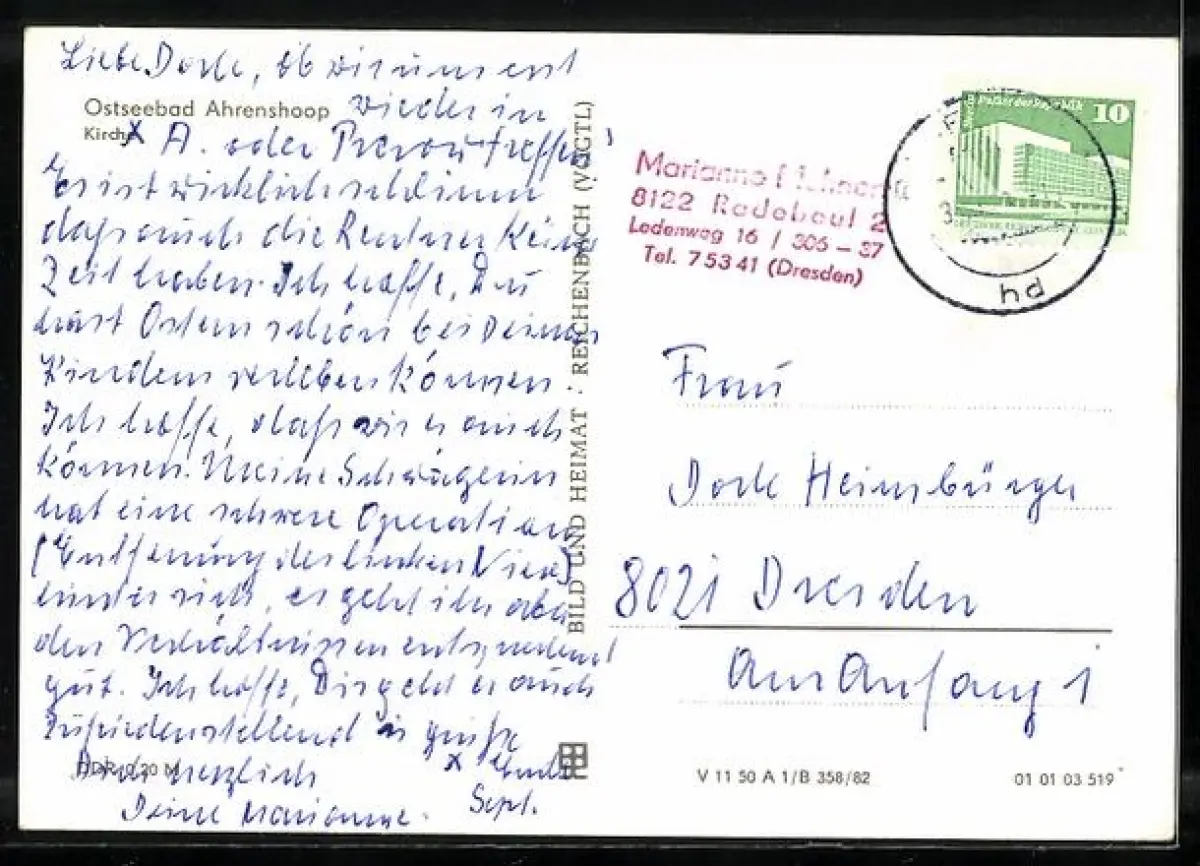 Liebe Dorle, ob wir uns erst
wieder in
Ostseebad Ahrenshoop
Kirche
x A. oder Prerow treffen?
Es ist wirklich schlimm
daß auch die Rentner keine
Zeit haben. Ich hoffe, Du
hast Ostern schön bei Deinen
Kindern verleben können.
Ich hoffe, daß wir es auch
können. Meine Schwägerin
hat eine schwere Operation
(Entfernung der linken Niere)
hinter sich, es geht ihr aber
den Verhältnissen entsprechend
gut. Ich hoffe, Dir geht es auch
zufriedenstellend u. grüße
Dich herzlich
Deine Marianne.
x Ende
Sept.
DDR 0,20 M
BILD UND HEIMAT · REICHENBACH (VOGTL)
Marianne
8122 Radebeul 2
Ledenweg 16 / 306 – 37
Tel. 75341 (Dresden)
Palast der Republik
10
hd
Frau
Dorle Heimbürger
8021 Dresden
Am Anfang 1
V 11 50 A 1/B 358/82
01 01 03 519